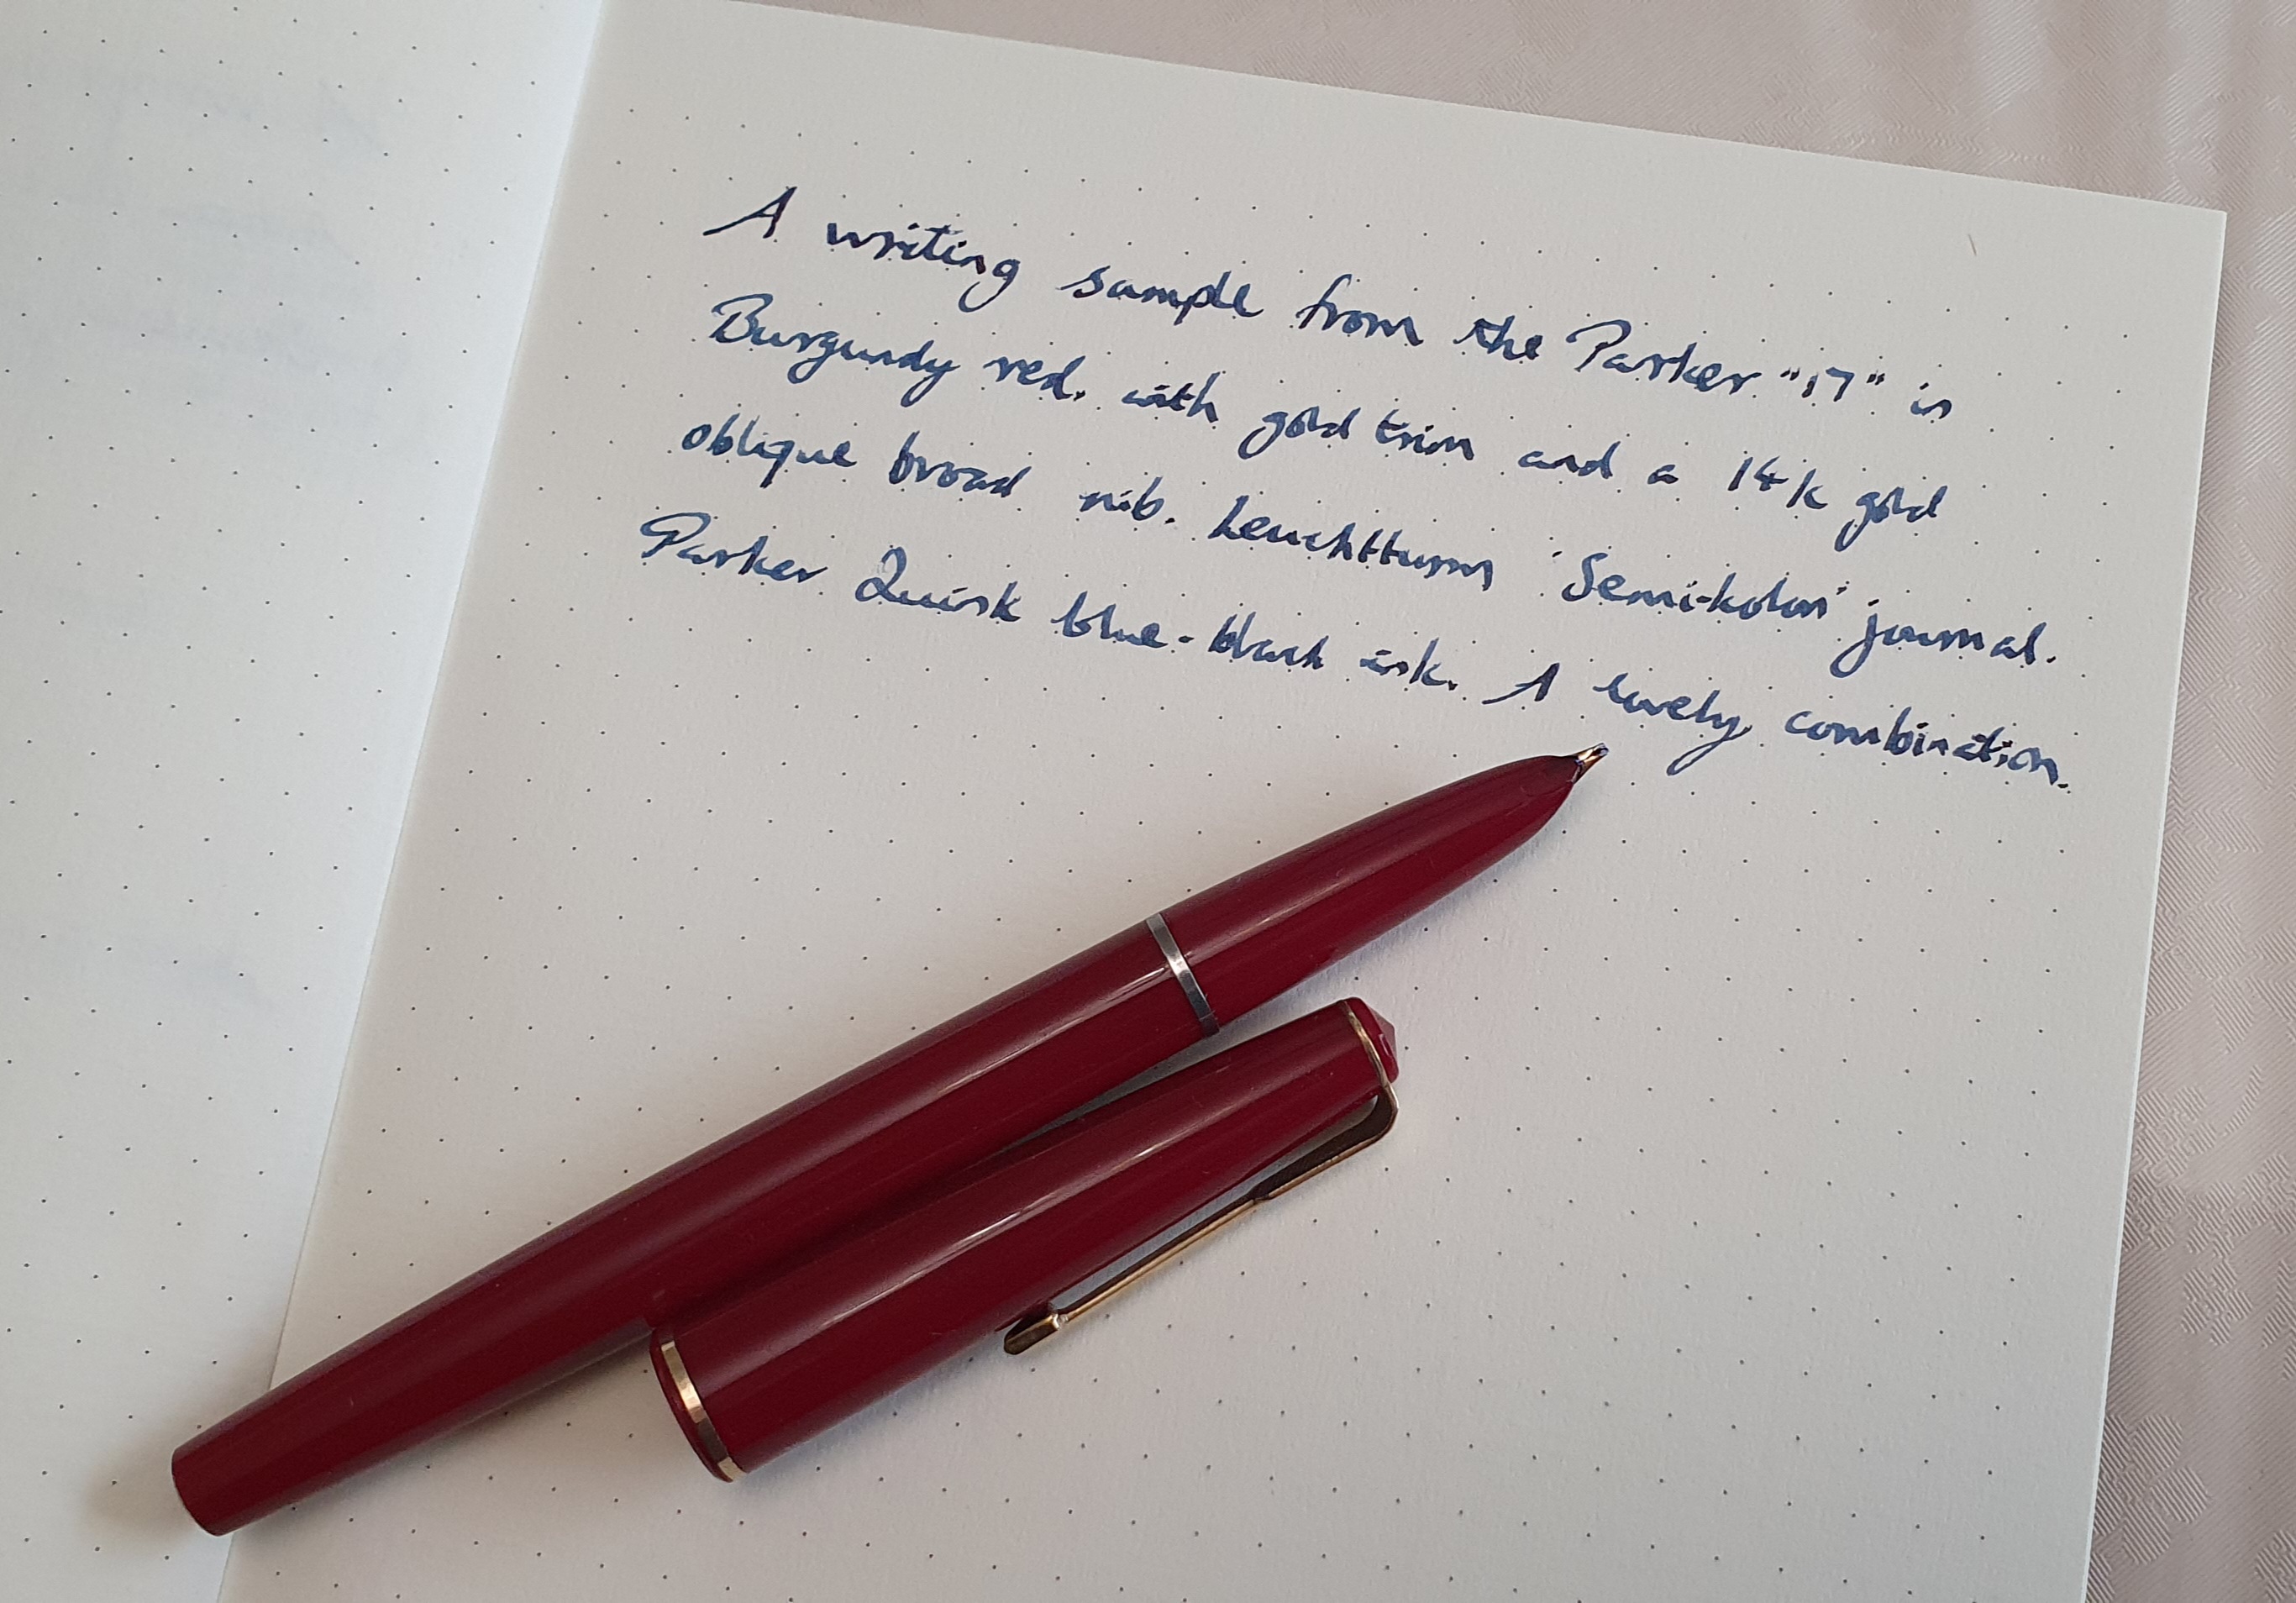 A writing sample from the Parker "17" in
Burgundy red. with gold trim and a 14k gold
oblique broad nib. Leuchtturm 'Semi-kolon' journal.
Parker Quink blue-black ink. A lovely combination.